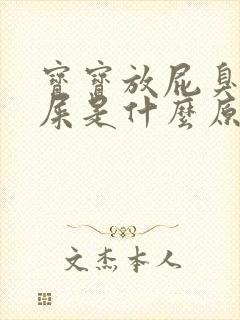 寶寶放屁臭
屎是什麼原
文杰本人